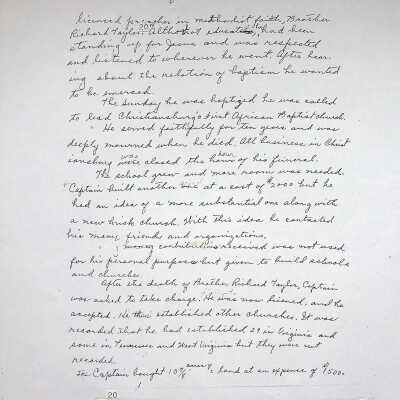 licensed preacher in methodist faith, Brother
Richard Taylor. Altho not educated, had been
standing up for Jesus and was respected
and listened to wherever he went. After hear-
ing about the relation of baptism he wanted
to be emersed.
The Sunday he was baptized he was called
to lead Christiansburg's First African Baptist Church.
He served faithfully for ten years and was
deeply mourned when he died. All business in Christ
iansburg was closed the hour of his funeral.
The school grew and more room was needed.
Captain built another one at a cost of $2000 but he
had an idea of a more substantial one along with
a new brick church. With this idea he contacted
his many friends and organizations.
contributions received was not used
for his personal purposes but given to build schools
and churches.
After the death of Brother Richard Taylor, Captain
was asked to take charge. He was now lisened, and he
accepted. He then established other churches. It was
recorded that he had established 29 in Virginia and
some in Tennessee and West Virginia but they were not
recorded.
Captain bought land at an expense of $500.
20